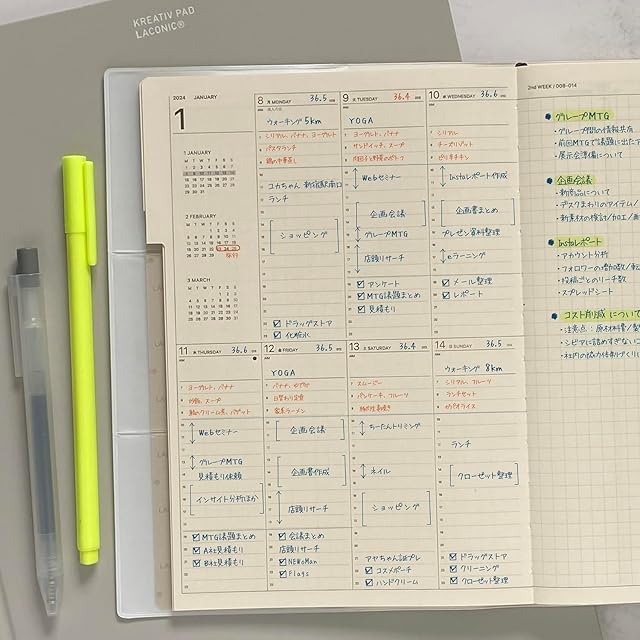 KREATIV PAD
LACONIC®
2024 JANUARY
1
1 JANUARY
2 FEBRUARY
旅行
3 MARCH
8 月 MONDAY 36.5
成人の日
ウォーキング 5km
シリアル、バナナ、ヨーグルト
パスタランチ
鍋の中華蒸し
ユカちゃん 新宿駅南口
ランチ
ショッピング
ドラッグストア
化粧水
9 火 TUESDAY 36.4
YOGA
ヨーグルト、バナナ
サンドイッチ、スープ
Webセミナー
企画会議
グループMTG
店頭リサーチ
アンケート
MTG議題まとめ
見積もり
10 水 WEDNESDAY 36.6
シリアル
チーズリゾット
ピリ辛チキン
Instaレポート作成
企画書まとめ
プレゼン資料整理
eラーニング
メール整理
レポート
11 木 THURSDAY 36.6
ヨーグルト、バナナ
Webセミナー
グループMTG
見積もり依頼
インサイト分析ほか
MTG議題まとめ
A社見積もり
B社見積もり
12 金 FRIDAY 36.5
YOGA
バナナ、ゆで卵
日替わり定食
企画会議
企画書作成
店頭リサーチ
会議まとめ
店頭リサーチ
NEWoMan
Flags
13 土 SATURDAY 36.4
スムージー
パンケーキ、フルーツ
ネイル
ショッピング
アヤちゃん誕プレ
コスメポーチ
ハンドクリーム
14 日 SUNDAY 36.5
ウォーキング 8km
シリアル、フルーツ
ランチセット
ランチ
クローゼット整理
ドラッグストア
クリーニング
クローゼット整理
2nd WEEK / 008-014
グループMTG
・グループ間の情報共有
・前回MTGで議題に出た
・展示会準備について
企画会議
・新商品について
・デスクまわりのアイテム/
・新素材の検討/加工/
Instaレポート
・アカウント分析
・フォロワーの増加数/
・投稿ごとのリーチ数
・スプレッドシート
コスト削減 について
・注意点：原材料費/
・シビアに詰めすぎない
・社内の協力体制づくり